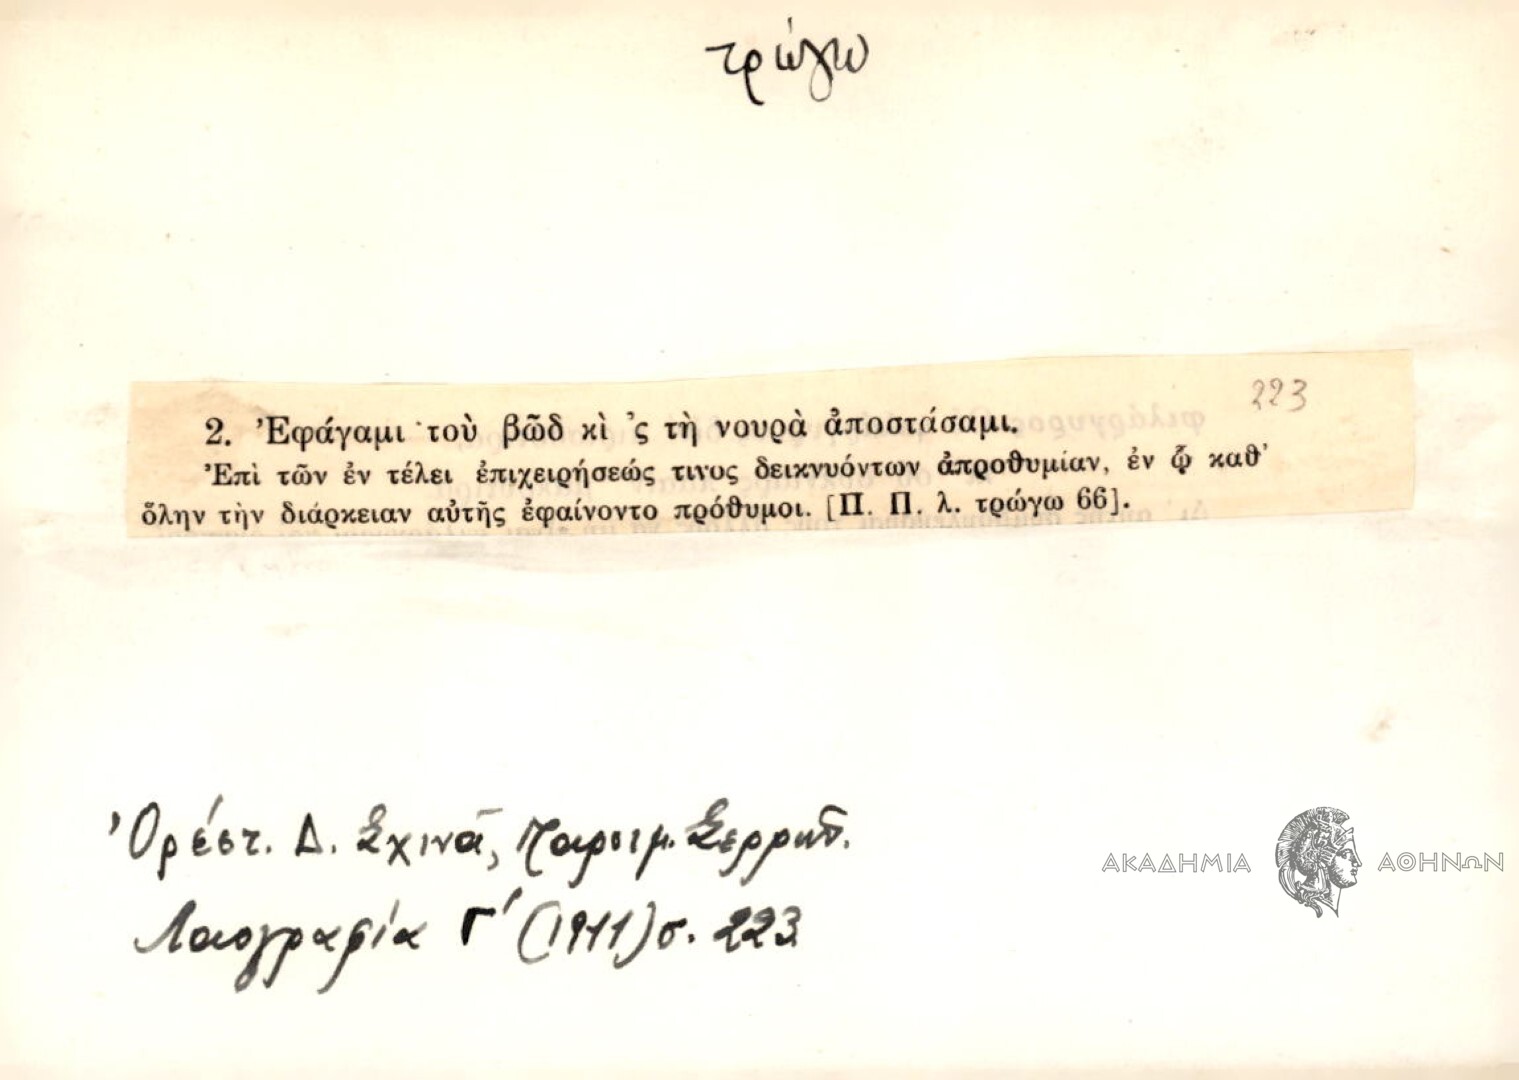 τρώγω
223
2. Ἐφάγαμι τοὺ βῶδ κὶ ᾿ς τὴ νουρὰ ἀποστάσαμι.
Ἐπὶ τῶν ἐν τέλει ἐπιχειρήσεώς τινος δεικνυόντων ἀπροθυμίαν, ἐν ᾧ καθ᾿
ὅλην τὴν διάρκειαν αὐτῆς ἐφαίνοντο πρόθυμοι. [Π. Π. λ. τρώγω 66].
Ὀρέστ. Δ. Σχινᾶ, Παροιμ. Σερρῶν.
Λαογραφία Γ΄ (1911) σ. 223
ΑΚΑΔΗΜΙΑ ΑΘΗΝΩΝ